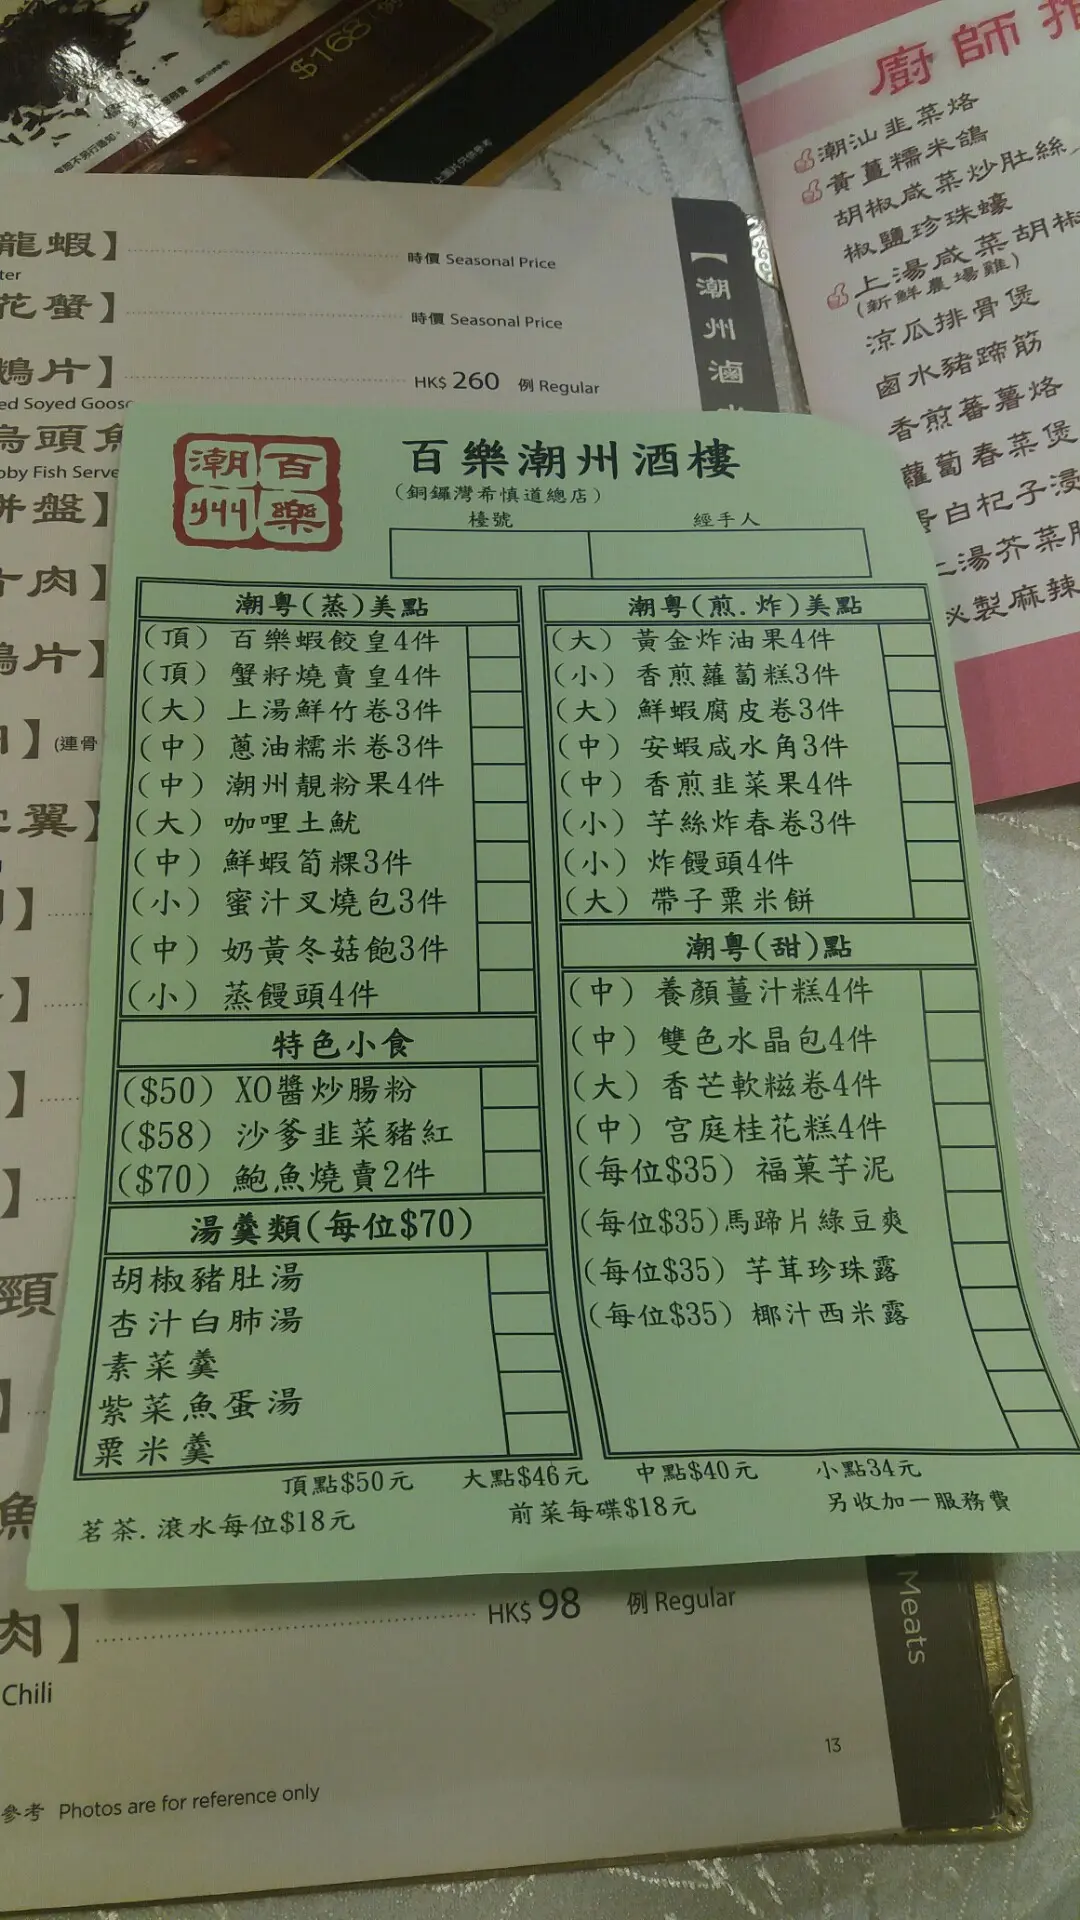 $168
龍蝦】 時價 Seasonal Price
花蟹】 時價 Seasonal Price
鵝片】 HK$ 260 例 Regular
ed Soyed Goose
烏頭魚
oby Fish Serve
拼盤】
片肉】
鵝片】
】(連骨
翼】
頸
魚
肉】 HK$ 98 例 Regular
Chili
13
參考 Photos are for reference only
【潮州滷水
Meats
廚師推
潮汕韭菜烙
黃薑糯米鴿
胡椒咸菜炒肚絲
椒鹽珍珠蠔
上湯咸菜胡椒
(新鮮農場雞)
涼瓜排骨煲
鹵水豬蹄筋
香煎蕃薯烙
蘿蔔春菜煲
蛋白杞子浸
上湯芥菜
秘製麻辣
潮百
州樂
百樂潮州酒樓
(銅鑼灣希慎道總店)
檯號 經手人
潮粵(蒸)美點
(頂) 百樂蝦餃皇4件
(頂) 蟹籽燒賣皇4件
(大) 上湯鮮竹卷3件
(中) 蔥油糯米卷3件
(中) 潮州靚粉果4件
(大) 咖哩土魷
(中) 鮮蝦筍粿3件
(小) 蜜汁叉燒包3件
(中) 奶黃冬菇飽3件
(小) 蒸饅頭4件
特色小食
($50) XO醬炒腸粉
($58) 沙爹韭菜豬紅
($70) 鮑魚燒賣2件
湯羹類(每位$70)
胡椒豬肚湯
杏汁白肺湯
素菜羹
紫菜魚蛋湯
粟米羹
潮粵(煎.炸)美點
(大) 黃金炸油果4件
(小) 香煎蘿蔔糕3件
(大) 鮮蝦腐皮卷3件
(中) 安蝦咸水角3件
(中) 香煎韭菜果4件
(小) 芋絲炸春卷3件
(小) 炸饅頭4件
(大) 帶子粟米餅
潮粵(甜)點
(中) 養顏薑汁糕4件
(中) 雙色水晶包4件
(大) 香芒軟糍卷4件
(中) 宮庭桂花糕4件
(每位$35) 福菓芋泥
(每位$35)馬蹄片綠豆爽
(每位$35) 芋茸珍珠露
(每位$35) 椰汁西米露
頂點$50元 大點$46元 中點$40元 小點34元
茗茶.滾水每位$18元 前菜每碟$18元 另收加一服務費